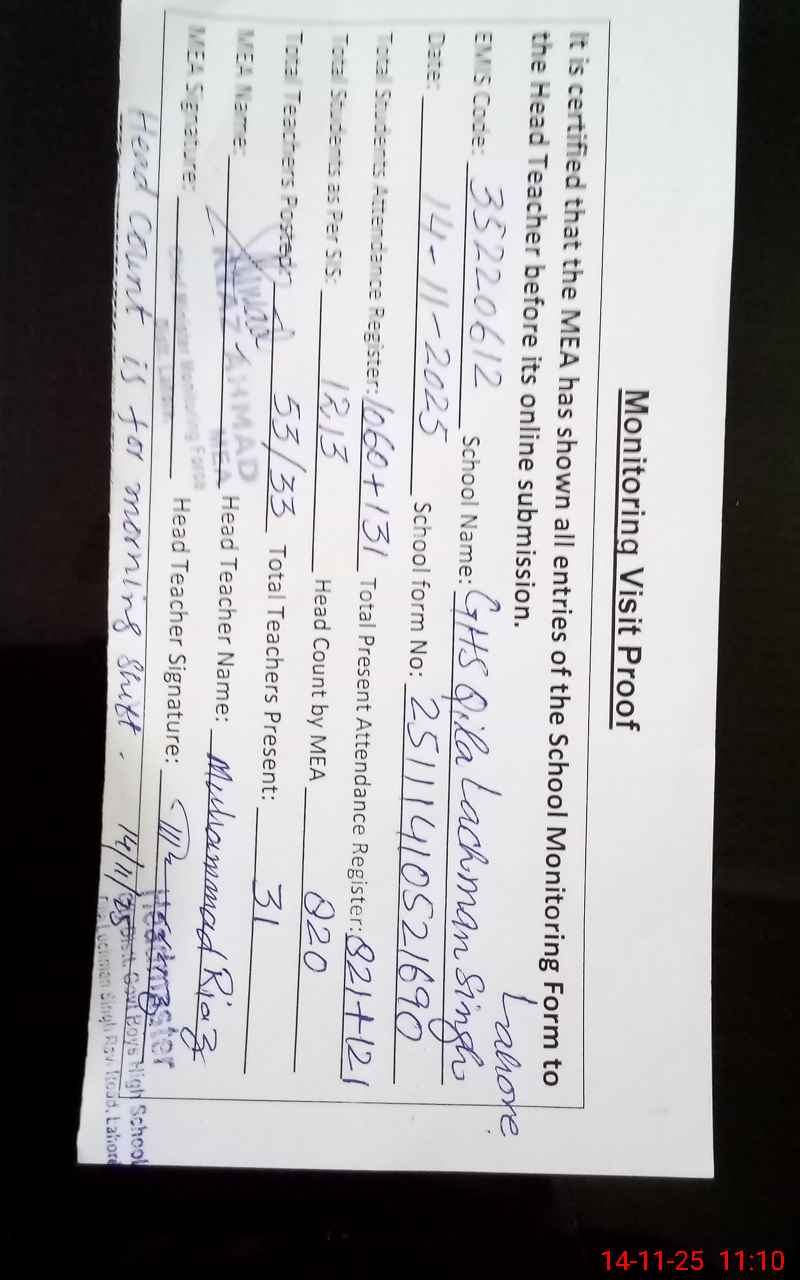 Monitoring Visit Proof
It is certified that the MEA has shown all entries of the School Monitoring Form to
the Head Teacher before its online submission.
EMIS Code: 35220612 School Name: GHS Qila Lachman Singh Lahore
Date: 14-11-2025 School form No: 25111410521690
Total Students Attendance Register: 1060+131 Total Present Attendance Register: 821+121
Total Students as Per SIS: 1213 Head Count by MEA 820
Total Teachers Posted: 53/33 Total Teachers Present: 31
MEA Name: AHMAD Head Teacher Name: Muhammad Riaz
MEA
MEA Signature: Head Teacher Signature:
Monitoring Force
Headmaster
Head count is for morning shift. 14/11/25
Govt Boys High School
Singh Ravi Road, Lahore
14-11-25 11:10